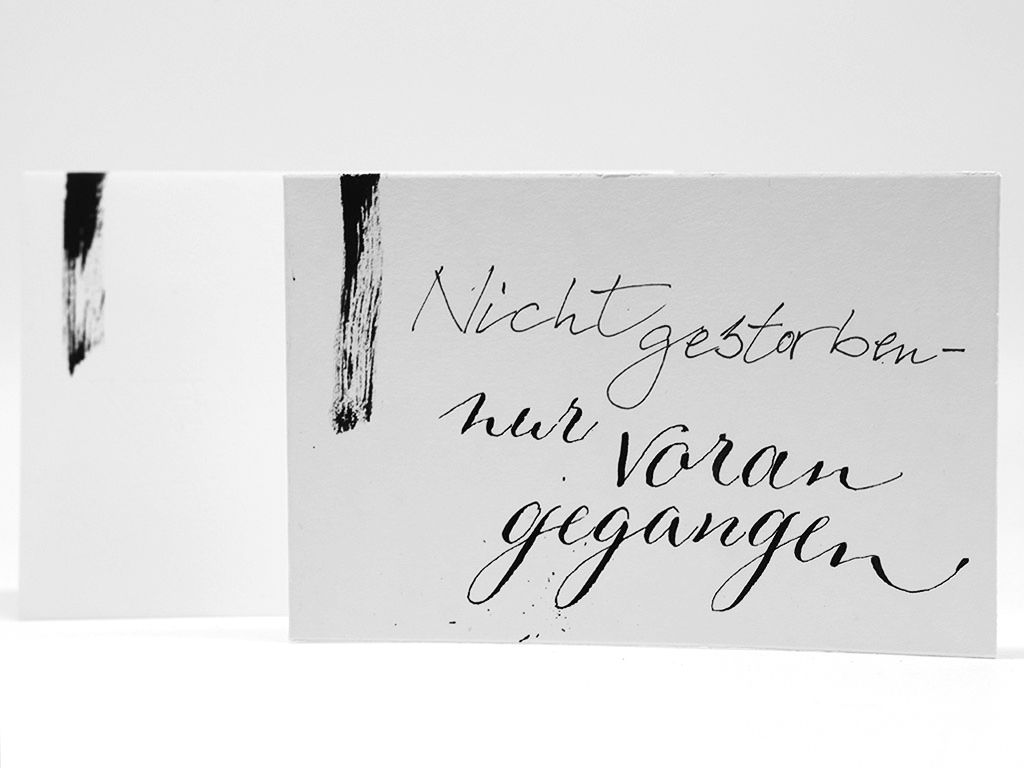 Nicht gestorben-
nur voran
gegangen